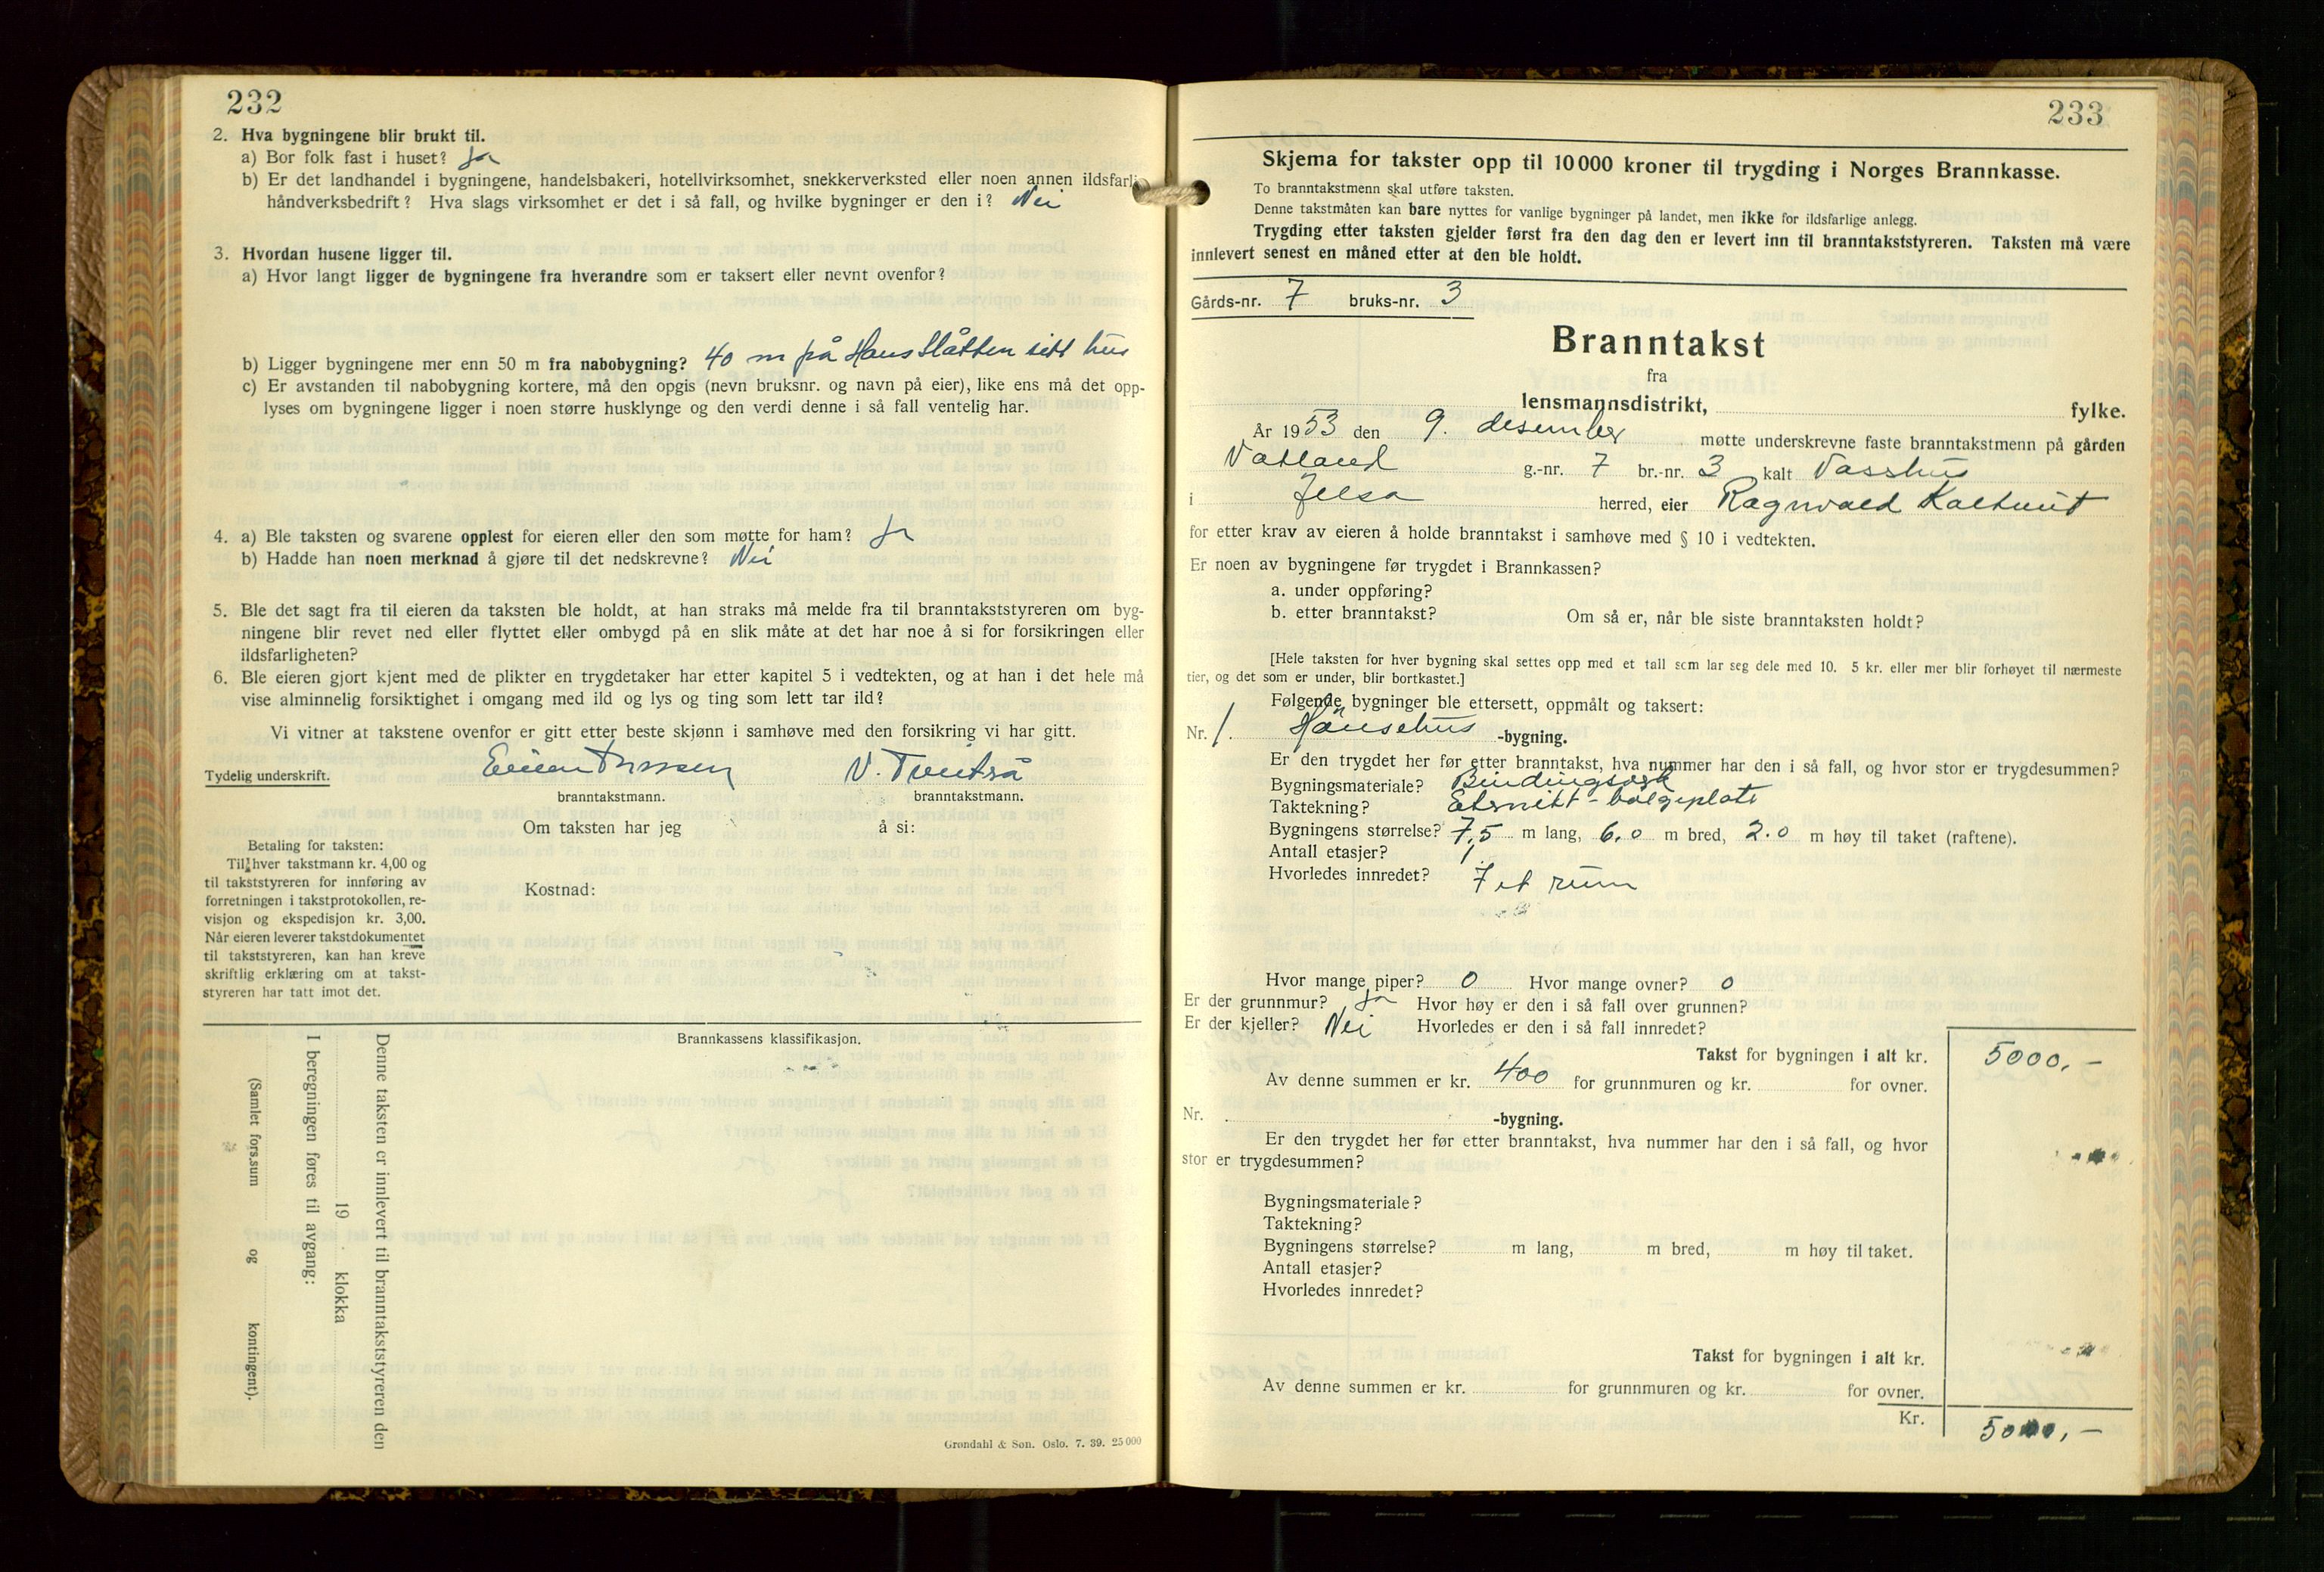 232
2. Hva bygningene blir brukt til.
a) Bor folk fast i huset? Ja
b) Er det landhandel i bygningene, handelsbakeri, hotellvirksomhet, snekkerverksted eller noen annen ildsfarli
håndverksbedrift? Hva slags virksomhet er det i så fall, og hvilke bygninger er den i? Nei
3. Hvordan husene ligger til.
a) Hvor langt ligger de bygningene fra hverandre som er taksert eller nevnt ovenfor?
b) Ligger bygningene mer enn 50 m fra nabobygning? 40 m på Hans Slåtten sitt hus
c) Er avstanden til nabobygning kortere, må den opgis (nevn bruksnr. og navn på eier), like ens må det opp-
lyses om bygningene ligger i noen større husklynge og den verdi denne i så fall ventelig har.
4. a) Ble taksten og svarene opplest for eieren eller den som møtte for ham? Ja
b) Hadde han noen merknad å gjøre til det nedskrevne? Nei
5. Ble det sagt fra til eieren da taksten ble holdt, at han straks må melde fra til branntakststyreren om byg-
ningene blir revet ned eller flyttet eller ombygd på en slik måte at det har noe å si for forsikringen eller
ildsfarligheten?
6. Ble eieren gjort kjent med de plikter en trygdetaker har etter kapitel 5 i vedtekten, og at han i det hele må
vise alminnelig forsiktighet i omgang med ild og lys og ting som lett tar ild?
Vi vitner at takstene ovenfor er gitt etter beste skjønn i samhøve med den forsikring vi har gitt.
Tydelig underskrift. V.
branntakstmann. branntakstmann.
Om taksten har jeg å si:
Betaling for taksten:
Til hver takstmann kr. 4,00 og
til takststyreren for innføring av
forretningen i takstprotokollen, re-
visjon og ekspedisjon kr. 3,00.
Når eieren leverer takstdokumentet
til takststyreren, kan han kreve
skriftlig erklæring om at takst-
styreren har tatt imot det.
Kostnad:
Brannkassens klassifikasjon.
Denne taksten er innlevert til branntakststyreren den
19 klokka
I beregningen føres til avgang:
(Samlet fors.sum og kontingent).
Grøndahl & Søn. Oslo. 7. 39. 25 000
233
Skjema for takster opp til 10 000 kroner til trygding i Norges Brannkasse.
To branntakstmenn skal utføre taksten.
Denne takstmåten kan bare nyttes for vanlige bygninger på landet, men ikke for ildsfarlige anlegg.
Trygding etter taksten gjelder først fra den dag den er levert inn til branntakststyreren. Taksten må være
innlevert senest en måned etter at den ble holdt.
Gårds-nr. 7 bruks-nr. 3
Branntakst
fra
lensmannsdistrikt, fylke.
År 1953 den 9. desember møtte underskrevne faste branntakstmenn på gården
Vatland g.-nr. 7 br.-nr. 3 kalt Vasshus
i Jelsa herred, eier Ragnvald Kaltveit
for etter krav av eieren å holde branntakst i samhøve med § 10 i vedtekten.
Er noen av bygningene før trygdet i Brannkassen?
a. under oppføring?
b. etter branntakst? Om så er, når ble siste branntaksten holdt?
[Hele taksten for hver bygning skal settes opp med et tall som lar seg dele med 10. 5 kr. eller mer blir forhøyet til nærmeste
tier, og det som er under, blir bortkastet.]
Følgende bygninger ble ettersett, oppmålt og taksert:
Nr. 1. Hønsehus -bygning.
Er den trygdet her før etter branntakst, hva nummer har den i så fall, og hvor stor er trygdesummen?
Bygningsmateriale? Bindingsverk
Taktekning? Eternitt-bølgeplate
Bygningens størrelse? 7,5 m lang, 6,0 m bred, 2.0 m høy til taket (raftene).
Antall etasjer? 1.
Hvorledes innredet? I et rum
Hvor mange piper? 0 Hvor mange ovner? 0
Er der grunnmur? Ja Hvor høy er den i så fall over grunnen?
Er der kjeller? Nei Hvorledes er den i så fall innredet?
Takst for bygningen i alt kr. 5000,-
Av denne summen er kr. 400 for grunnmuren og kr. for ovner.
Nr. -bygning.
Er den trygdet her før etter branntakst, hva nummer har den i så fall, og hvor
stor er trygdesummen?
Bygningsmateriale?
Taktekning?
Bygningens størrelse? m lang, m bred, m høy til taket.
Antall etasjer?
Hvorledes innredet?
Takst for bygningen i alt kr.
Av denne summen er kr. for grunnmuren og kr. for ovner.
Kr. 5000,-